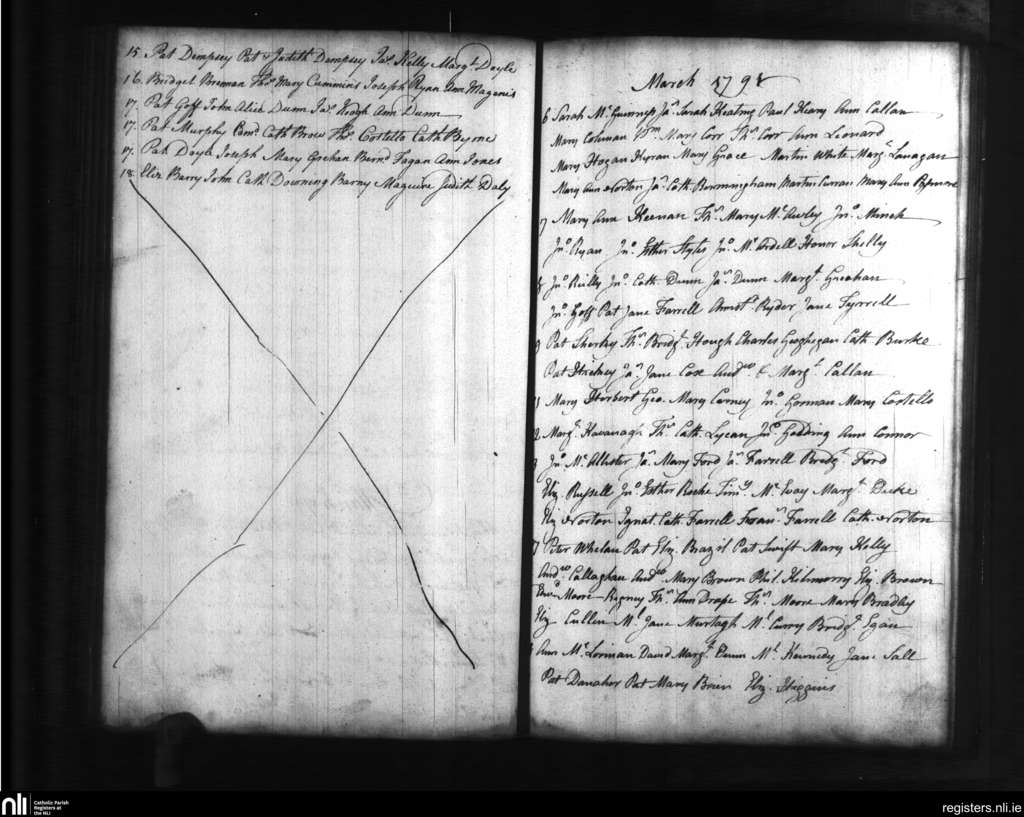 15 Pat Dempsey Pat & Judith Dempsey Jas Kelly Margt Doyle
16. Bridget Brennan Thos Mary Cummins Joseph Ryan Ann Magenis
17. Pat Goff John Alice Dunn Jas Keogh Ann Dunn
17. Pat Murphy Edwd Cath Brow Thos Costello Cath Byrne
17. Pat Doyle Joseph Mary Bernd Fagan Ann Jones
18. Eliz Barry John Cath Downing Barny Maguire Judith Daly
March 1798
6 Sarah Mc Jas Sarah Keating Paul Heavy Ann Callan
Mary Colunan Wm Mary Corr Thos Corr Ann Leonard
Mary Hogan Kyran Mary Grace Martin White Margt Lanagan
Mary Ann Norton Jas Cath. Birmingham Martin Curran Mary Ann
7 Mary Ann Keenan Thos Mary McAwley Jno Minch
Jno Ryan Jno Esther Styles Jno McArdell Honor Shelly
Jno Reilly Jno Cath Dunn Jas Dunn Margt Greahan
Jno Goff Pat Jane Farrell Amst Ryder Jane Tyrrell
9 Pat Sherky Thos Bridgt Hough Charles Geoghegan Cath Burke
Pat Jas Jane Cox Andw & Margt Callan
11 Mary Herbert Geo. Mary Carney Jno Gorman Mary Costello
12 Margt Kavanagh Thos Cath. Lycan Jno Godding Ann Connor
Jno McAllister Jas Mary Ford Jas Farrell Bridgt Ford
Eliz Russell Jno Esther Roche Timy McEvay Margt Burke
Eliz Norton Ignat. Cath. Farrell Fran Farrell Cath. Norton
Peter Whelan Pat Eliz. Brazil Pat Swift Mary Kelly
Andw Callaghan Andw Mary Brown Phil. Kilmorry Eliz. Brown
Edwd Moore Rigney Thos Ann Drape Thos Moore Mary Bradley
Eliz Cullen Ml Jane Murtagh Ml Curry Bridgt Egan
Ann McLorinan David Margt Dunn Ml Kennedy Jane Sall
Pat Danaher Pat Mary Brien Eliz. Higgins
nli
Catholic Parish
Registers at
the NLI
registers.nli.ie